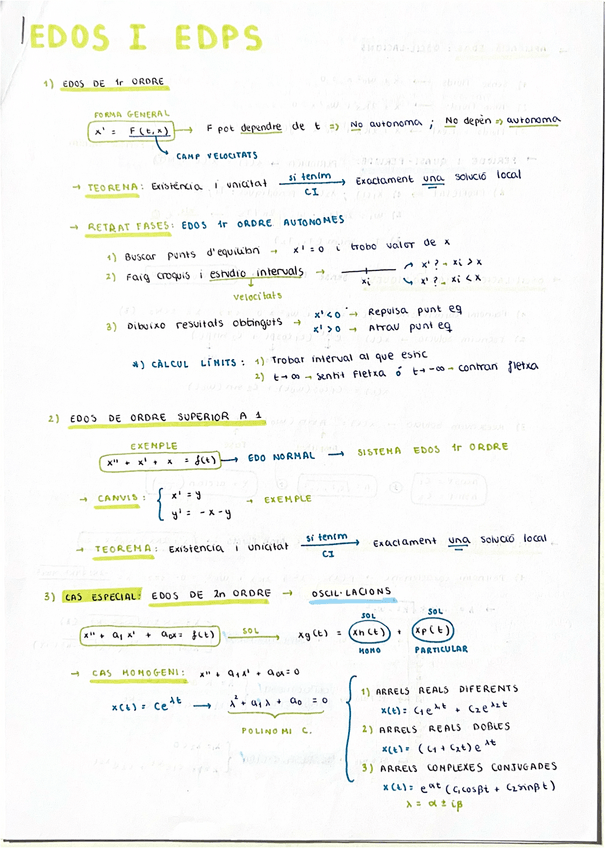 EDOS I EDPS
1) EDOS DE 1r ORDRE
FORMA GENERAL
x' = F(t,x) → F pot dependre de t => No autonoma ; No depèn => autonoma
CAMP VELOCITATS
→ TEOREMA: Existència i unicitat si tenim CI → Exactament una solució local
→ RETRAT FASES: EDOS 1r ORDRE AUTONOMES
1) Buscar punts d'equilibri → x' = 0 i trobo valor de x
2) Faig croquis i estudio intervals → xi x'? → xi > x
x'? → xi < x
velocitats
3) Dibuixo resultats obtinguts → x' < 0 → Repulsa punt eq
x' > 0 → Atrau punt eq
*) CÀLCUL LÍMITS: 1) Trobar interval al que estic
2) t→∞ → sentit fletxa ó t→-∞ → contrari fletxa
2) EDOS DE ORDRE SUPERIOR A 1
EXEMPLE
x'' + x' + x = f(t) → EDO NORMAL → SISTEMA EDOS 1r ORDRE
→ CANVIS: { x' = y → EXEMPLE
y' = -x - y
→ TEOREMA: Existencia i unicitat si tenim CI → Exactament una solució local
3) CAS ESPECIAL: EDOS DE 2n ORDRE → OSCIL·LACIONS
x'' + a₁x' + a₀x = f(t) SOL → xg(t) = SOL xh(t) + SOL xp(t)
HOMO PARTICULAR
→ CAS HOMOGENI: x'' + a₁x' + a₀x = 0
x(t) = Ce^λt → λ² + a₁λ + a₀ = 0
POLINOMI C.
1) ARRELS REALS DIFERENTS
x(t) = C₁e^λ₁t + C₂e^λ₂t
2) ARRELS REALS DOBLES
x(t) = (C₁ + C₂t)e^λt
3) ARRELS COMPLEXES CONJUGADES
x(t) = e^αt (C₁cosβt + C₂sinβt)
λ = α ± iβ